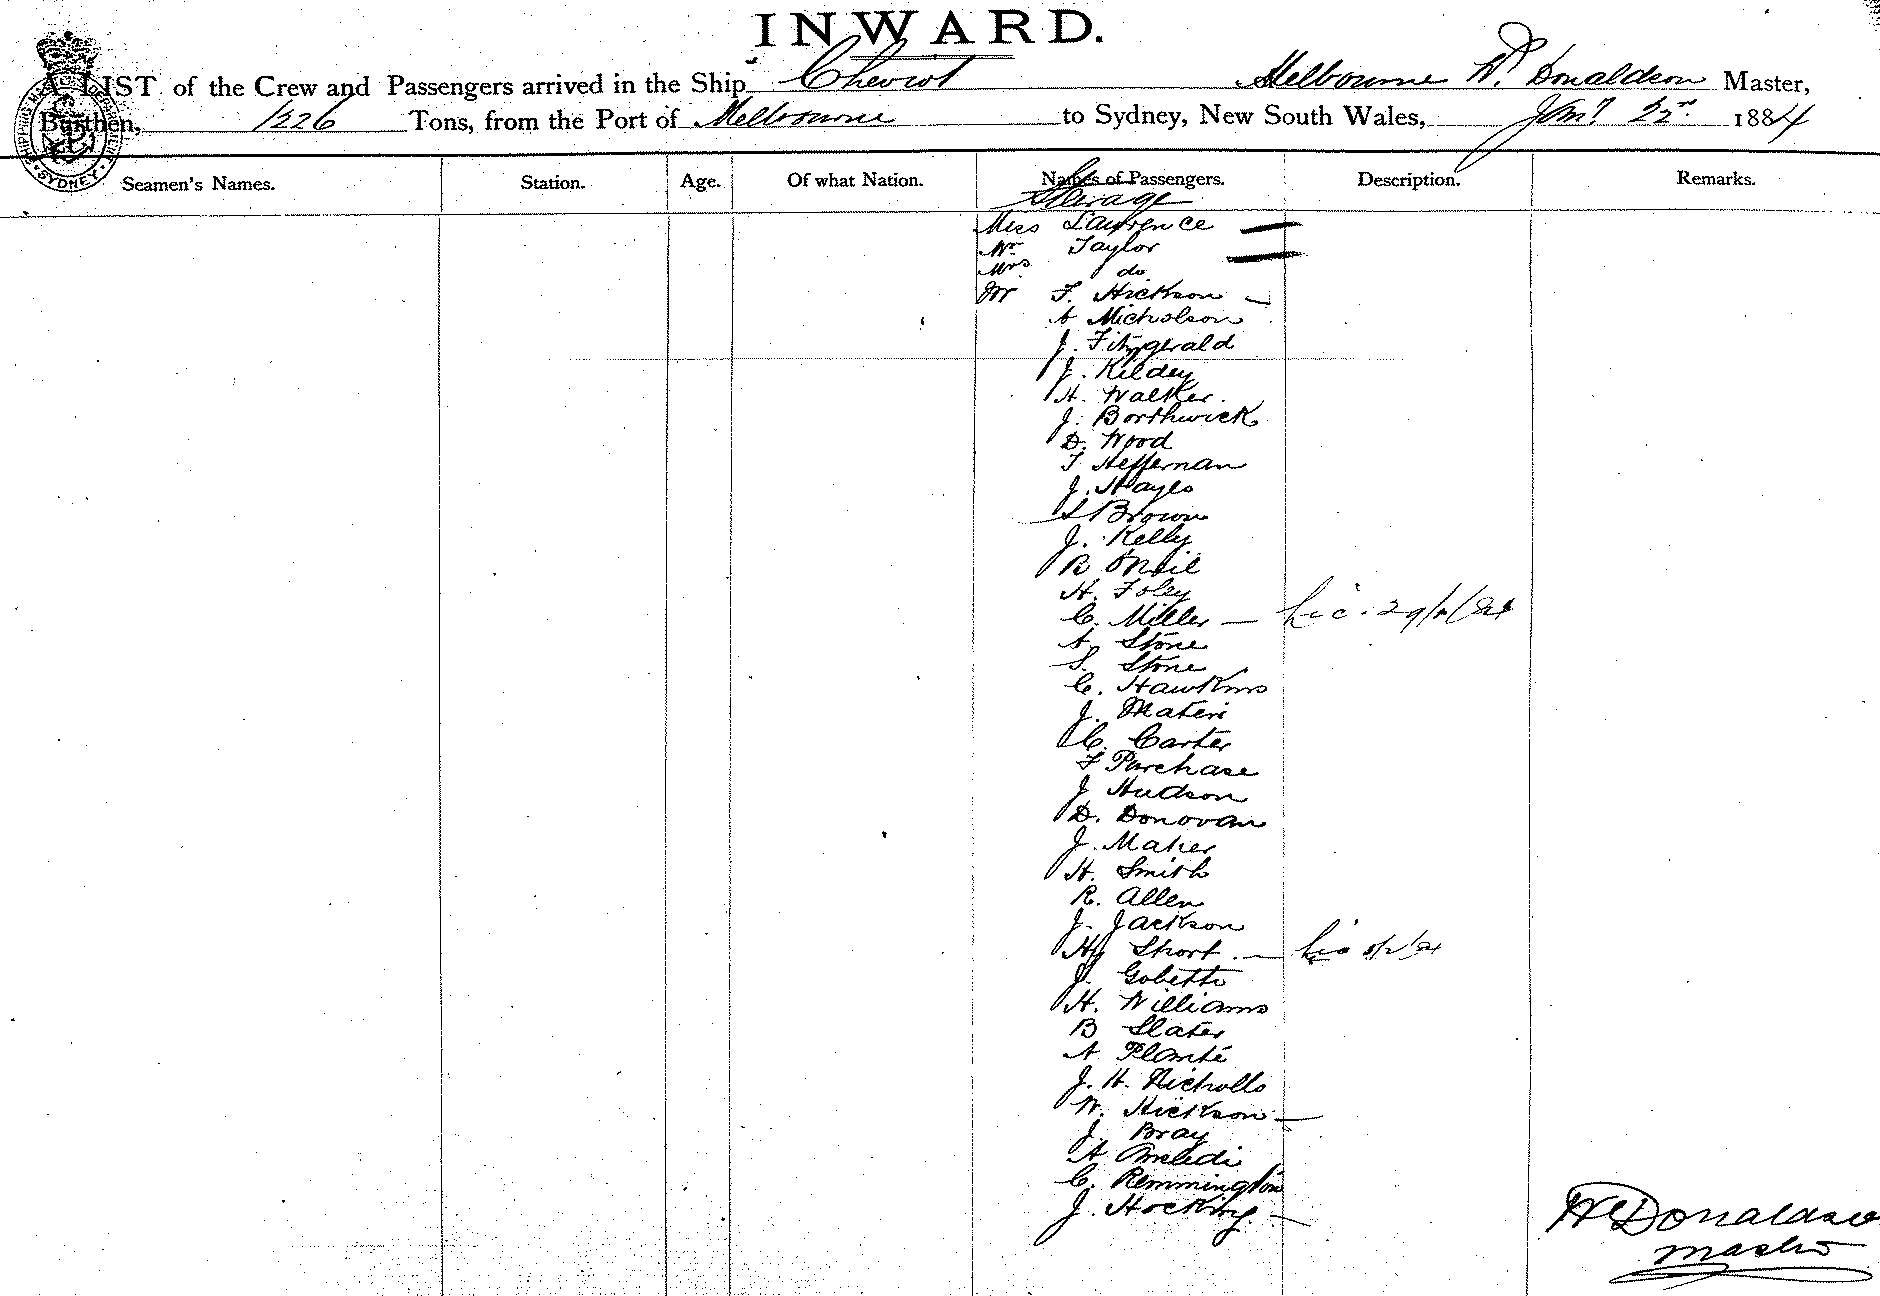 INWARD.
A LIST of the Crew and Passengers arrived in the Ship Cheviot Melbourne W. Donaldson Master,
Burthen, 1226 Tons, from the Port of Melbourne to Sydney, New South Wales, Jany 22nd 1884
SYDNEY
Seamen's Names. Station. Age. Of what Nation. Names of Passengers. Description. Remarks.
Steerage
Miss Lawrence
Mr Taylor
Mrs do
Mr F. Hickson
A Nicholson
J. Fitzgerald
J. Kildey
H. Walker.
J. Borthwick
D. Wood
T Heffernan
J. Hayes
S Brown
J. Kelly
R ONeil
H. Foley
C. Miller
A Stone
S. Stone
C. Hawkins
J. Materi
C. Carter
F Purchase
J Hudson
D. Donovan
J. Maher
H. Smith
R. Allen
J. Jackson
Hy Short
J. Gobetti
H. Williams
B Slater
A Planté
J. H. Nicholls
W. Hickson
J. Bray
A
C. Remmington
J. Hocking
W Donaldson
Master